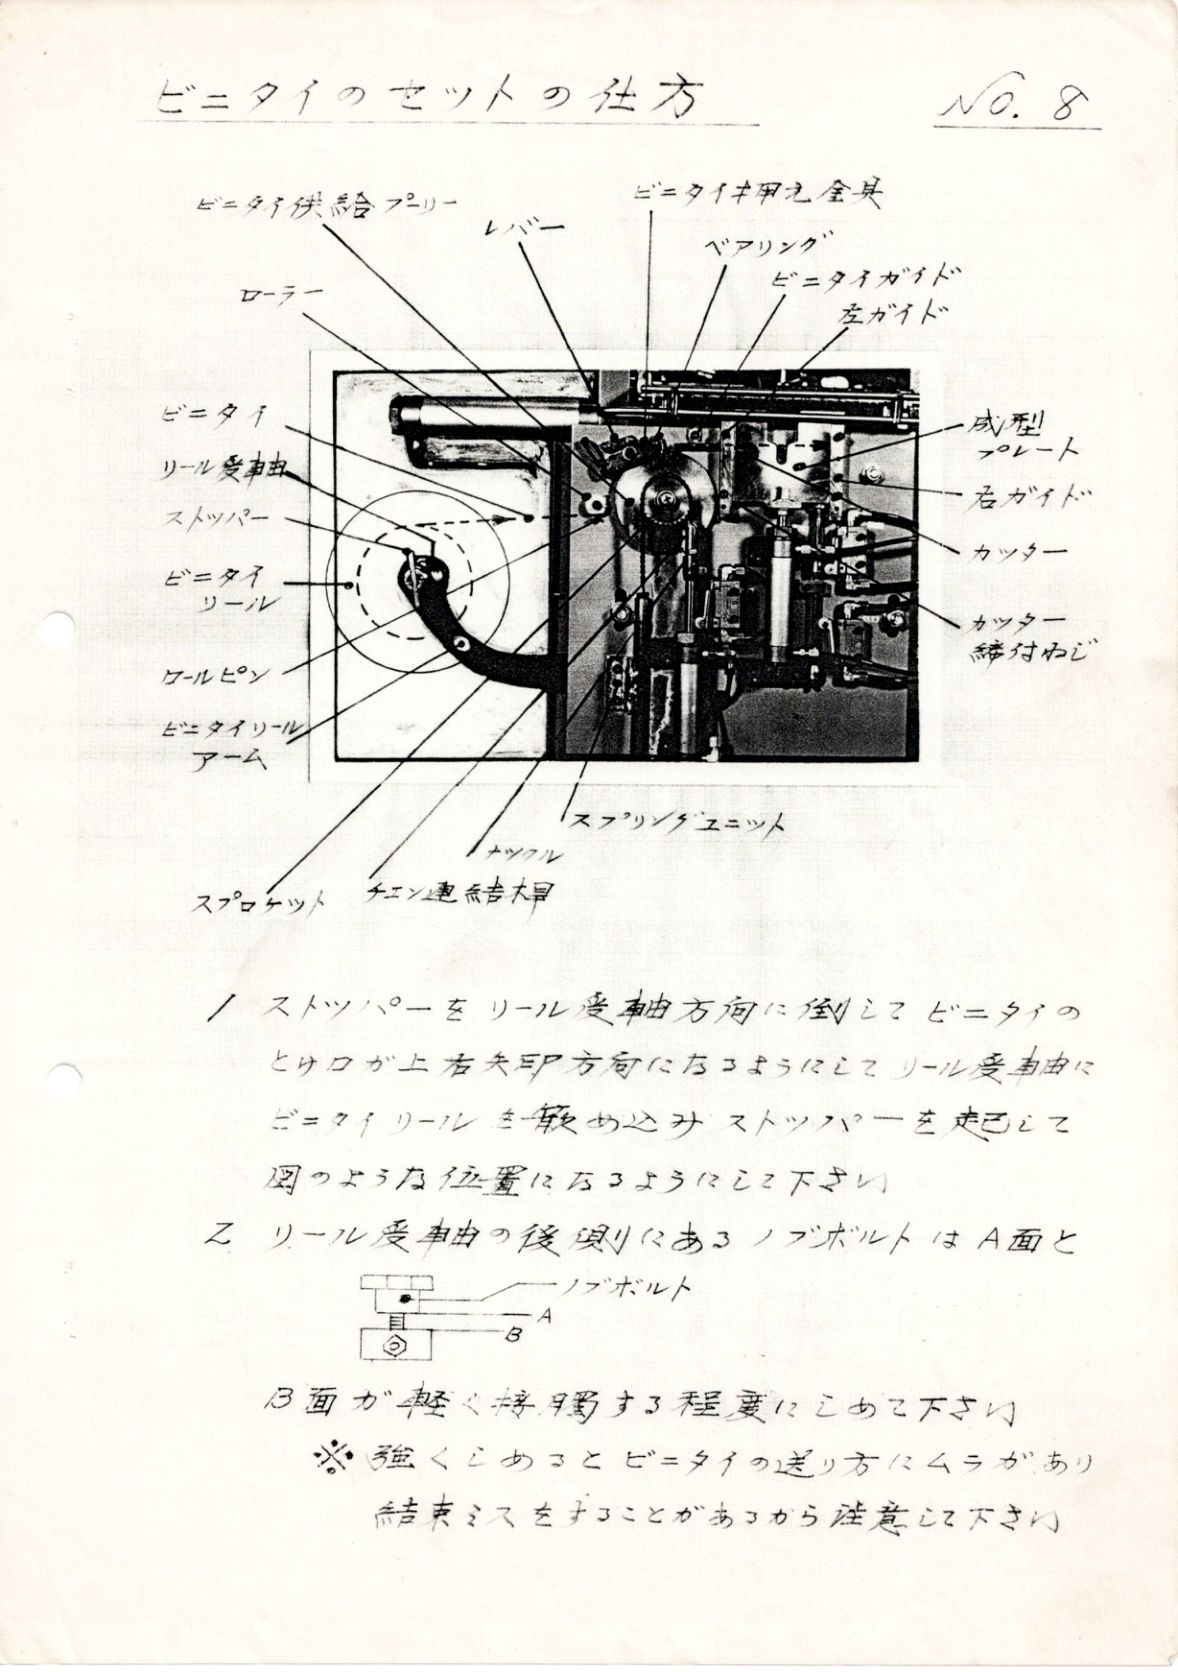 ビニタイのセットの仕方
NO. 8
ビニタイ供給プーリー
レバー
ビニタイ押え金具
ベアリング
ビニタイガイド
左ガイド
ローラー
ビニタイ
リール受軸
ストッパー
ビニタイ
リール
ロールピン
ビニタイリール
アーム
成型
プレート
右ガイド
カッター
カッター
締付ねじ
スプリングユニット
ナックル
チエン連結桿
スプロケット
1 ストッパーをリール受軸方向に倒してビニタイの
とけ口が上右矢印方向になるようにしてリール受軸に
ビニタイリールを嵌め込みストッパーを起して
図のような位置になるようにして下さい
2 リール受軸の後側にあるノブボルトはA面と
ノブボルト
A
B
B面が軽く接触する程度にしめて下さい
※強くしめるとビニタイの送り方にムラがあり
結束ミスをすることがあるから注意して下さい